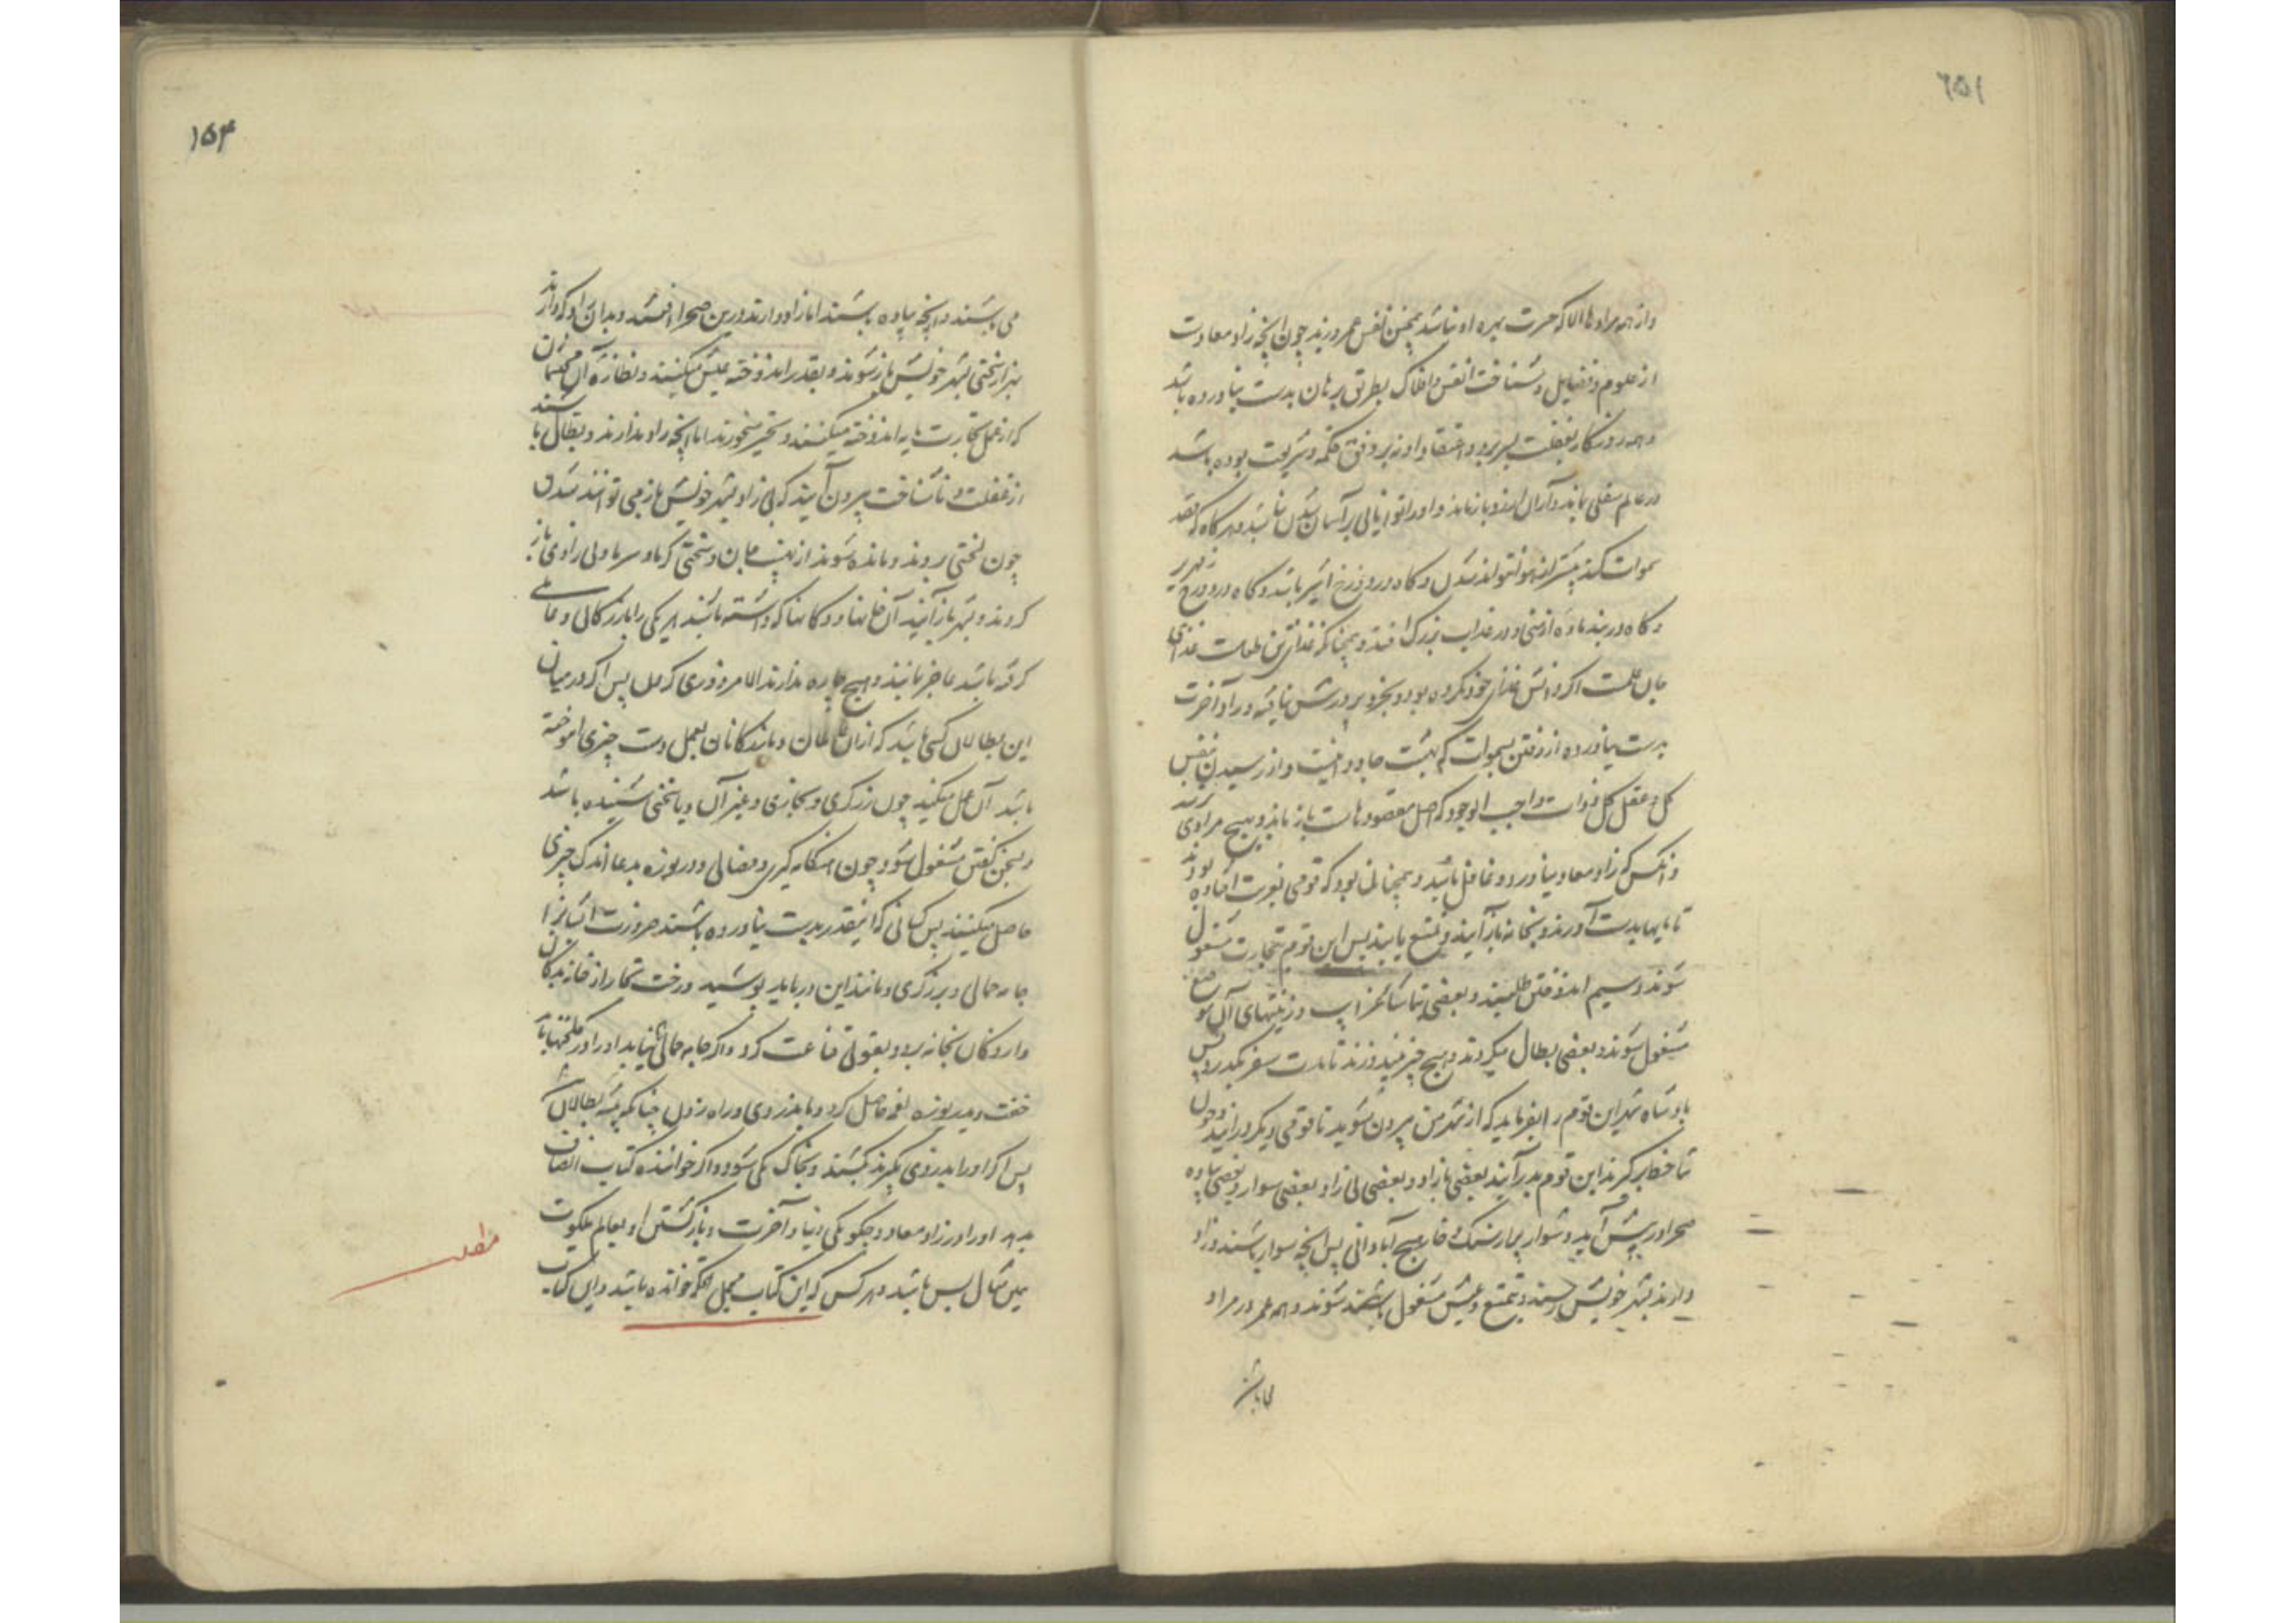 ۱۵۶
و از همه مرادها الا که حسرت بهره او نباشد همچنین نفس عمر ورزند چون آنچه زاد معادست
از علوم و فضایل و شناخت انفس و افلاک بطریق برهان بدست نیاورده باشد
و همه روزگار بغفلت بسر برد و اعتقاد او نه بر وفق حکمة و شریعت بوده باشد
در عالم سفلی بماند و از آن اندوه بازماند و او را توانایی بر آسمان شدن نباشد و هرگاه که قصد
سموات کند بیشتر از هوا نتواند شدن و گاه در دوزخ اثیر باشد و گاه در دوزخ زمهریر
و گاه در بند ماده ارضی و در عذاب بزرگ افتد و همچنانکه غذای تن طعامست غذای
جان علمست اگر دانش غذای خود نکرده بود و بخرد پرورش نایافته و راه آخرت
بدست نیاورده از رفتن بسموات که بهشت جاودانیست و از رسیدن بنفس
کل و عقل کل و ذات واجب الوجود که اصل مقصودهاست باز ماند و بهیچ مرادی نرسد
و آنکس که زاد معاد نیاورد و غافل باشد همچنان بود که قومی بغربت افتاده بودند
تا مایها بدست آورند و بخانه باز آیند و تمتع یابند پس این قوم بتجارت مشغول
شوند و سیم اندوختن طلبند و بعضی بتماشا غرایب و زینتهای آن موضع
مشغول شوند و بعضی بطال میگردند و هیچ چیز نیندوزند تا مدت سفر بگذرد پس
پادشاه شهر این قوم را بفرماید که از شهر من بیرون شوید تا قومی دیگر در آیند و چون
تنها خطاب کردند این قوم بدر آیند بعضی با زاد و بعضی بی زاد و بعضی سوار و بعضی پیاده
صحرا در پیش آید دشوار پر از سنگ و خار و هیچ آبادانی پس آنچه سوار باشند و زاد
دارند بشهر خویش رسند و بتمتع و عیش مشغول باشند شوند و همه عمر در مراد
۱۵۴
می باشند و آنچه پیاده باشند اما زاد دارند درین صحرا افتند و بدان زاد که دارند
بهزار سختی بشهر خویش باز شوند و بقدر اندوخته عیش میکنند و نظاره آن محتشمان
که از عمل تجارت مایه اندوخته میکنند و تحسر میخورند اما آنچه زاد ندارند و بطال باشند
از غفلت و ناشناخت بیرون آیند که بی زاد بشهر خویش باز می توانند شدن
چون لختی بروند و مانده شوند از نهیب بیابان و سختی گرما و سرما و بی زادی باز
گردند و بشهر باز آیند آن خانها و دکانها که داشته باشند هر یکی را بازرگانی و عاملی
گرفته باشد عاجز مانند و هیچ چاره ندارند الا مزدوری کردن پس اگر در میان
این بطالان کسی باشد که از آن بطالان و ماندگانان بعمل دست چیزی آموخته
باشد آن عمل میکند چون زرگری و نجاری و غیر آن و یا سخنی شنیده باشد
و بسخن گفتن مشغول شود چون هنگامه گیری و فضالی و دریوزه بدعا اندک چیزی
حاصل میکنند پس کسانی که اینقدر بدست نیاورده باشند ضرورت ایشانرا
جامه حمالی و برزگری و مانند این در باید پوشید و رخت تجار از خانه بدکان
و از دکان بخانه برد و بقوتی قناعت کرد و اگر جامه حمالی نیابد او را در گلخنها باید
خفت و بدریوزه لقمه حاصل کرد و یا بدزدی و راه زدن چنانکه پیشه بطالان
پس اگر او را بدزدی بگیرند بکشند و بخاک یکی شود و اگر خواننده کتاب انصاف
بدهد او را در زاد معاد و چگونگی دنیا و آخرت و باز گشتن او بعالم ملکوت
همین مثال بس باشد و هر کس که این کتاب مجمل الحکمه خوانده باشد و این کتاب
مطلب